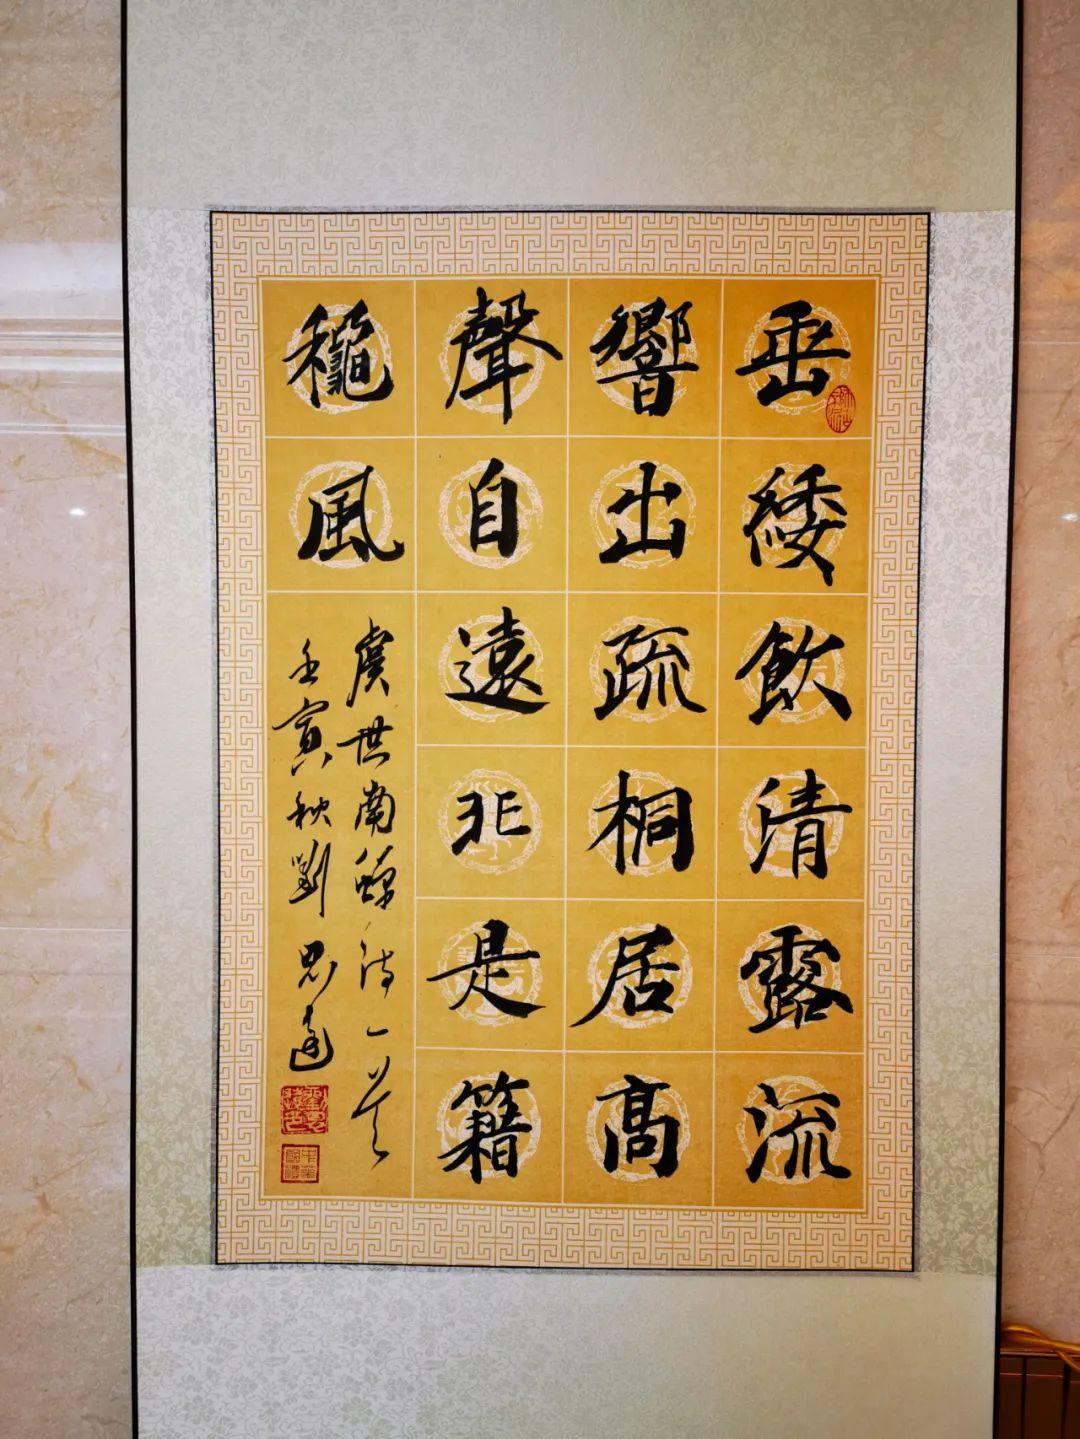 垂緌飲清露流
響出疏桐居高
聲自遠非是籍
穐風
虞世南蟬詩一首
壬寅秋劉思